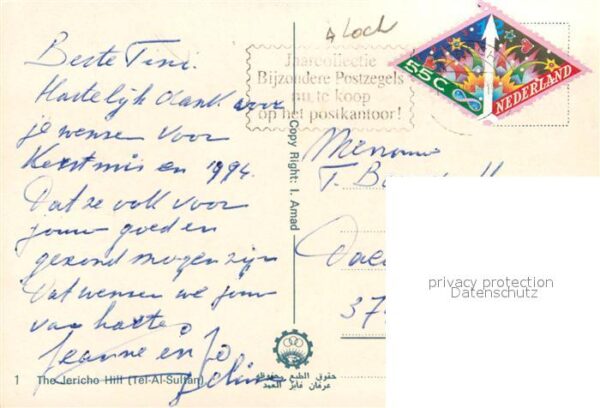 4 Loch
Beste Tini.
Hartelijk dank voor
je wensen voor
Kerstmis en 1994.
Dat ze ook voor
jouw goed en
gezond mogen zijn
Dat wensen we jou
van harte,
Jeanne en Jo
Jaarcollectie
Bijzondere Postzegels
nu te koop
op het postkantoor!
55c
NEDERLAND
Copy Right: I. Amad
Mevrouw
T. B
37
privacy protection
Datenschutz
1 The Jericho Hill (Tel-Al-Sultan)
حقوق الطبع محفوظة
عرفان فايز العمد